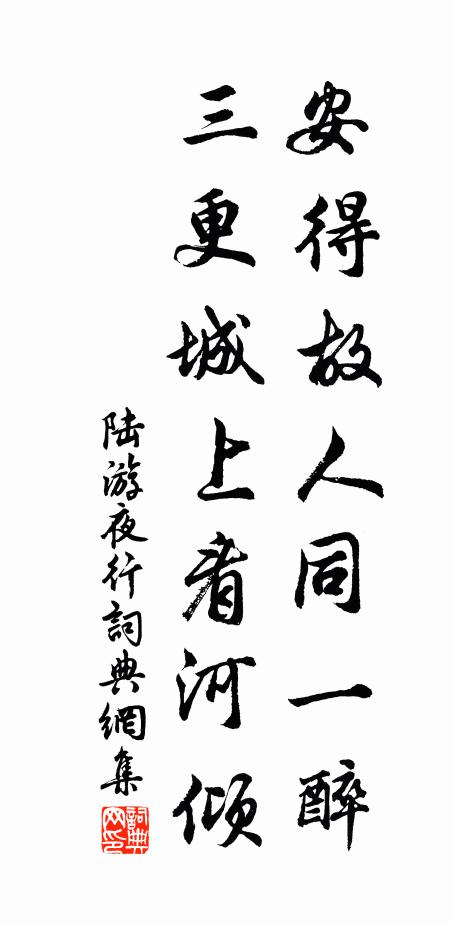 安得故人同一醉
三更城上看河傾
陆游夜行詞典網集
詞典
网印